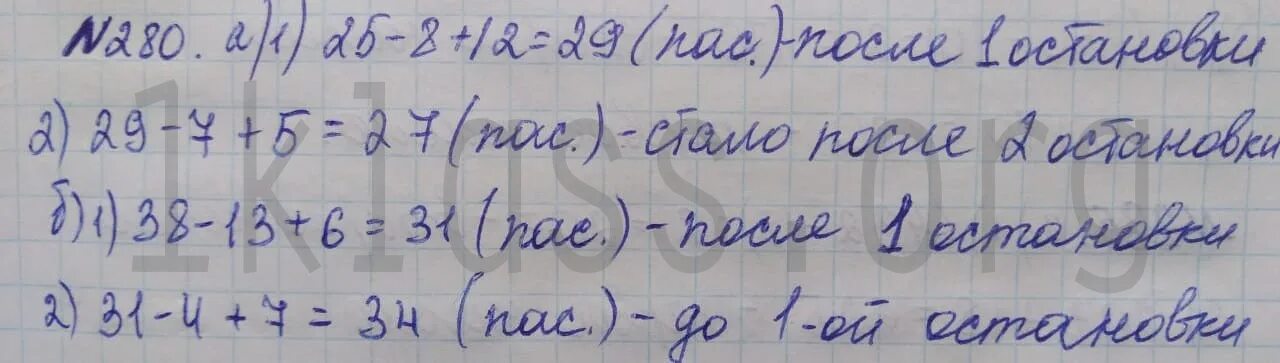 №280. а)1) 25-8+12=29 (пас.)-после 1 остановки
2) 29-7+5=27 (пас.)-стало после 2 остановки
б)1) 38-13+6=31 (пас.)-после 1 остановки
2) 31-4+7=34 (пас.)-до 1-ой остановки
1klass.org